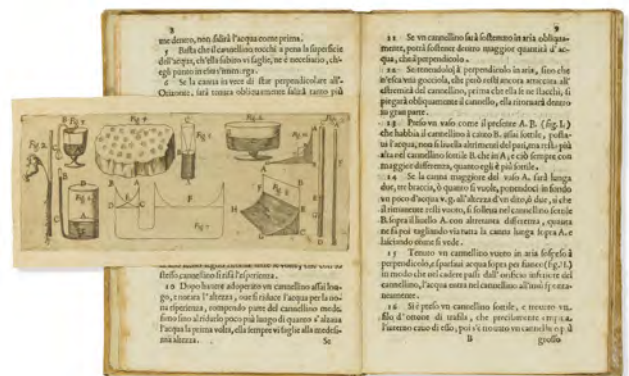 8
me dentro, non ſalirà l'acqua come prima.
5 Baſta che il cannellino tocchi a pena la ſuperficie
dell'acqua, ch'ella ſubito vi ſaglie, nè è neceſſario, ch'
egli punto in eſsa s'immerga.
6 Se la canna in vece di ſtar perpendicolare all'
Orizonte, ſarà tenuta obliquamente ſalirà tanto più
Fig. 2.
B
Fig. 3
Fig. 4
C
Fig. 5
Fig. 6
A
B
A
B
C
D
F
Fig. 7
H
F
G
Fig. 8
B
C
A
E
G
D
F
ſteſſo cannellino ſi rifà l'eſperienza.
10 Dopo hauere adoperito vn cannellino aſſai lon-
go, e notata l'altezza, oue ſi riduce l'acqua per la no-
ſtra eſperienza, rompendo parte del cannellino mede-
ſimo ſino al ridurlo poco più lungo di quanto s'alzaua
l'acqua la prima volta, ella ſempre vi ſaglie alla medeſi-
ma altezza.
Se
9
11 Se vn cannellino ſarà ſoſtenuto in aria obliqua-
mente, potrà ſoſtener dentro maggior quantità d'ac-
qua, che à perpendicolo.
12 Se tenendolo à perpendicolo in aria, ſino che
n'eſca vna gocciola, che però reſti ancora attaccata all'
eſtremità del cannellino, prima che ella ſe ne ſtacchi, ſi
piegarà obliquamente il cannello, ella ritornarà dentro
in gran parte.
13 Preſo vn vaſo come il preſente A. B. (fig. I.)
che habbia il cannellino à canto B. aſſai ſottile, poſta-
ui l'acqua, non ſi liuella altrimenti del pari, ma reſta più
alta nel cannellino ſottile B che in A; e ciò ſempre con
maggior differenza, quanto egli è più ſottile.
14 Se la canna maggiore del vaſo A. ſarà lunga
due, tre braccia, ò quanto ſi vuole, ponendoci in fondo
vn poco d'acqua v.g. all'altezza d'vn dito, ò due, sì che
il rimanente reſti vuoto, ſi ſolleua nel cannellino ſottile
B ſopra il liuello A con altretanta differenza, quanta
ne fà poi tagliando via tutta la canna lunga ſopra A. e
laſciando come ſi vede.
15 Tenuto vn cannellino vuoto in aria ſoſpeſo à
perpendicolo, e ſparſaui acqua ſopra per fianco (fig. 2.)
in modo che nel cadere paſſi dall'orificio inferiore del
cannellino, l'acqua entra nel cannellino all'insù ſponta-
neamente.
16 Si è preſo vn cannellino ſottile, e trouato vn
filo d'ottone di trafila, che preciſamente empiua
l'interno cauo di eſſo, poi s'è trouato vn cannello più
B
groſſo